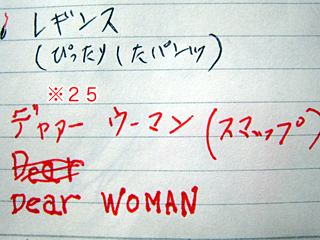 レギンス
(ぴったりしたパンツ)
※25
デャァー ウーマン(スマップ)
Dear
Dear WOMAN